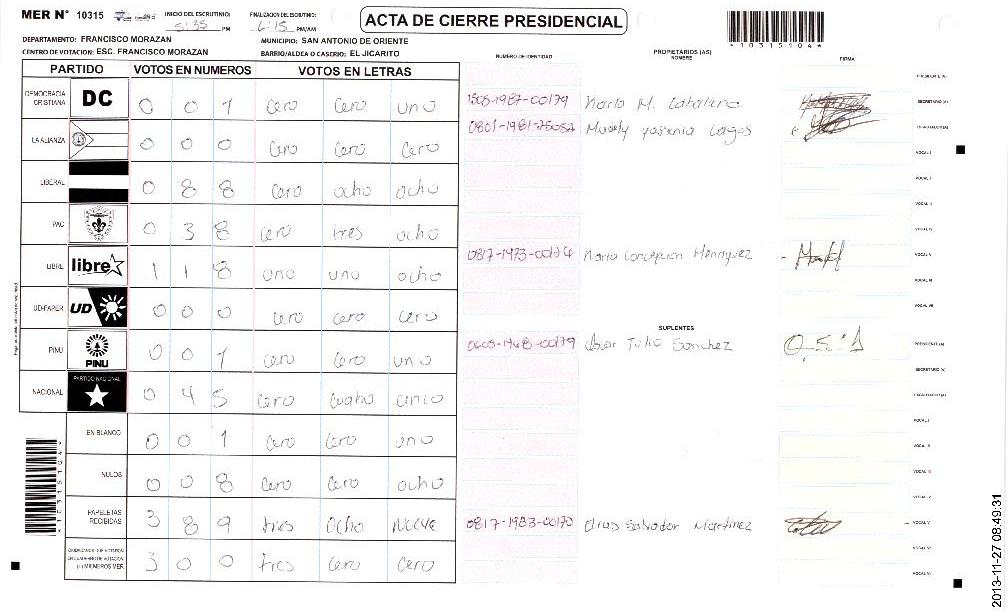 MER N° 10315
INICIO DEL ESCRUTINIO: 5:35 PM
FINALIZACION DEL ESCRUTINIO: 6:15 PM/AM
ACTA DE CIERRE PRESIDENCIAL
*10315104*
DEPARTAMENTO: FRANCISCO MORAZAN
MUNICIPIO: SAN ANTONIO DE ORIENTE
CENTRO DE VOTACION: ESC. FRANCISCO MORAZAN
BARRIO/ALDEA O CASERIO: EL JICARITO
NUMERO DE IDENTIDAD
PROPIETARIOS (AS)
NOMBRE
FIRMA
PARTIDO VOTOS EN NUMEROS VOTOS EN LETRAS
PRESIDENTE (A)
DEMOCRACIA CRISTIANA DC 0 0 1 cero cero uno
1505-1987-00179 SECRETARIO (A)
0801-1981-25052 ESCRUTADOR (A)
LA ALIANZA 0 0 0 cero cero cero
VOCAL I
LIBERAL 0 8 8 cero ocho ocho
VOCAL II
VOCAL III
PAC 0 3 8 cero tres ocho
VOCAL IV
LIBRE libre 1 1 8 uno uno ocho
Maria Concepcion Henriquez VOCAL V
VOCAL VI
UD-FAPER UD 0 0 0 cero cero cero
VOCAL VII
SUPLENTES
PINU PINU 0 0 1 cero cero uno
Oscar Tulio Sanchez PRESIDENTE (A)
SECRETARIO (A)
NACIONAL PARTIDO NACIONAL 0 4 5 cero cuatro cinco
ESCRUTADOR (A)
VOCAL I
EN BLANCO 0 0 1 cero cero uno
VOCAL II
VOCAL III
NULOS 0 0 8 cero cero ocho
VOCAL IV
PAPELETAS RECIBIDAS 3 8 9 tres ocho nueve
0817-1983-00170 Elias Salvador Martinez VOCAL V
VOCAL VI
CIUDADANOS QUE VOTARON EN CUADERNO DE VOTACION (+) MIEMBROS MER 3 0 0 tres cero cero
VOCAL VII
*10315104*
2013-11-27 08:49:31